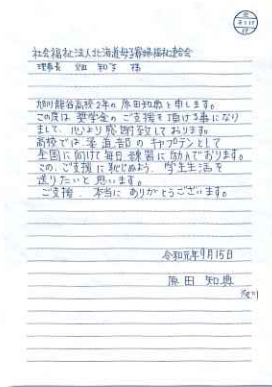 社会福祉法人北海道母子寡婦福祉連合会
理事長 畑 知子 様
旭川龍谷高校2年の 原田知典と申します。
この度は 奨学金のご支援を頂ける事になり
まして、心より感謝致しております。
高校では 柔道部の キャプテンとして
全国に向けて毎日練習に励んでおります。
この、ご支援に恥じぬよう、学生生活を
送りたいと思います。
ご支援、本当に ありがとうございます。
令和元年9月15日
原田 知典
旭川